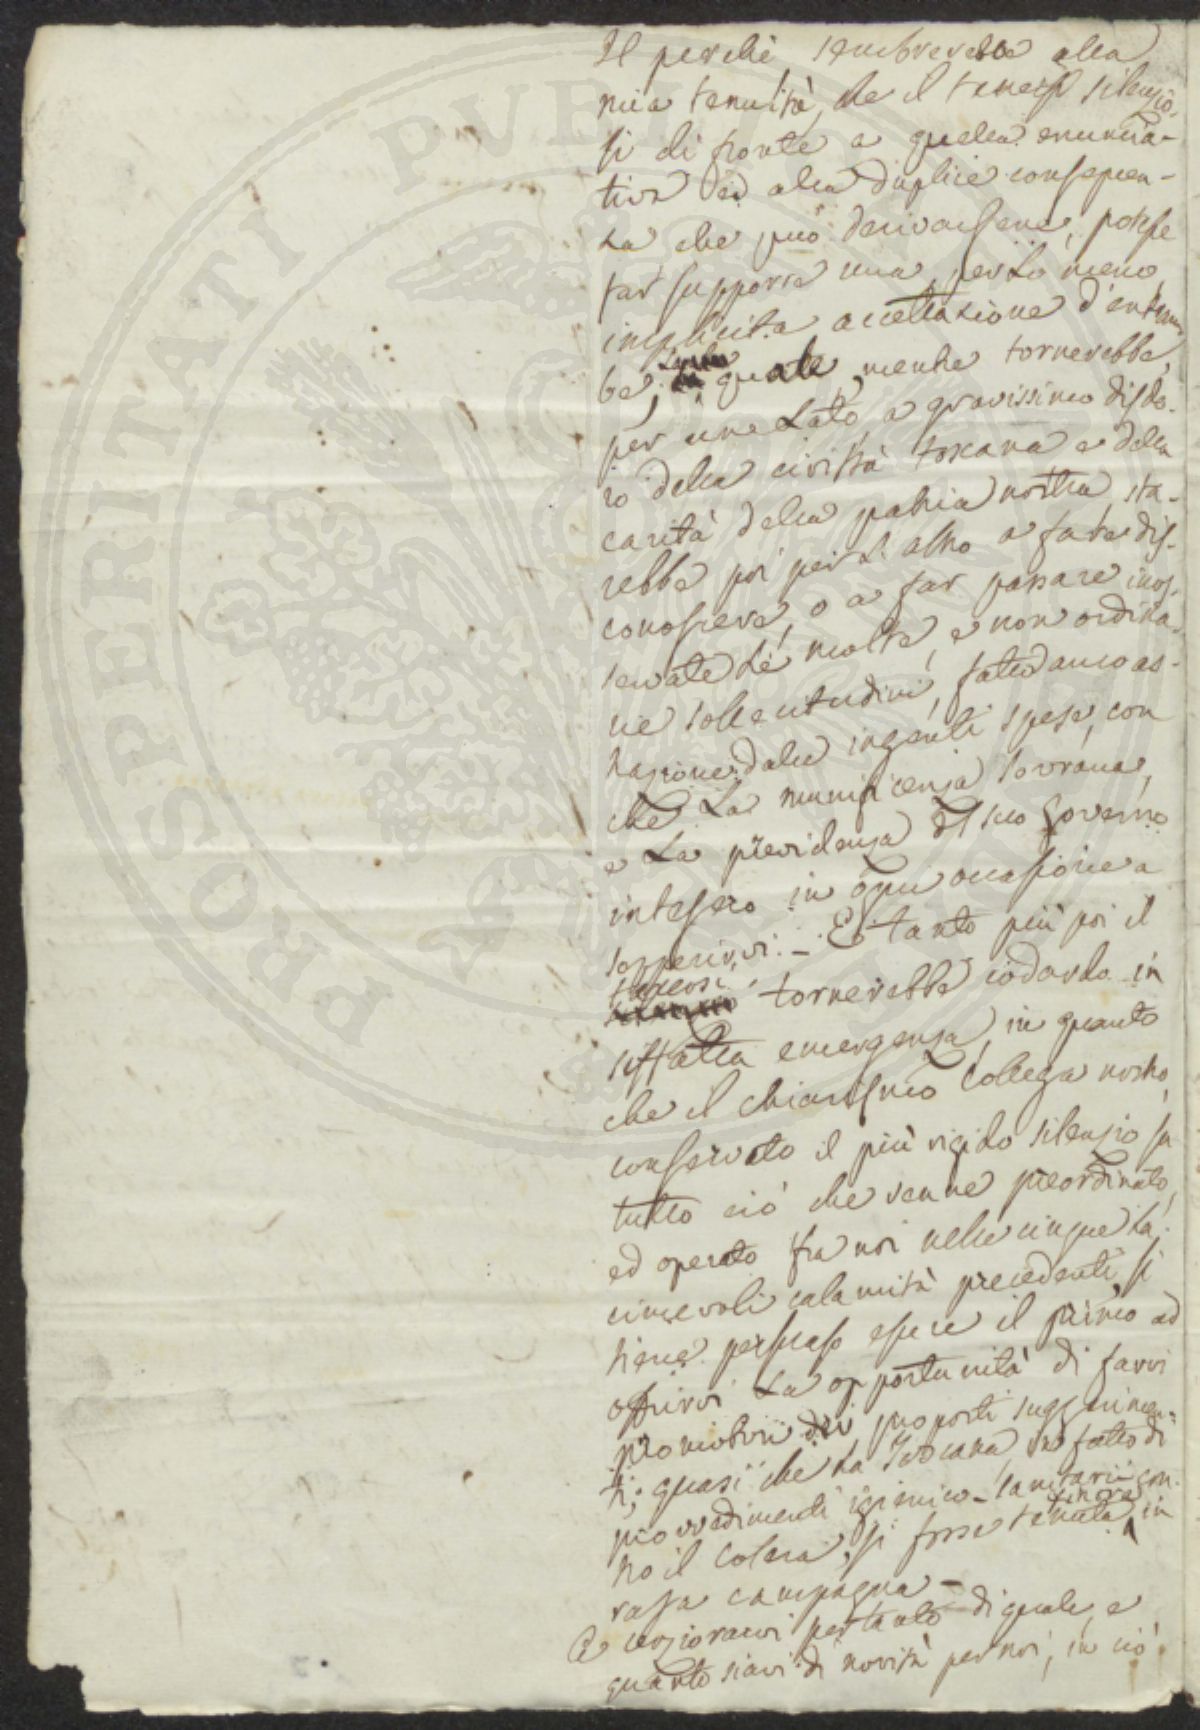 Il perchè sembrerebbe alla
mia tenuità, che il tenersi silenzio-
si di fronte a quella enuncia-
tiva ed alla duplice conseguen-
za che può derivarsene, potesse
far supporre una per lo meno
implicita accettazione d'entram-
be; quale mentre tornerebbe,
per une lato, a gravissimo disdo-
ro della civiltà toscana e della
carità della patria nostra, sta-
rebbe poi per l'altro a fare dis-
conoscere, o a far passare inos-
servate le molte, e non ordina-
rie sollecitudini, fatta anco as-
trazione dalle ingenti spese, con
che la munificenza sovrana,
e la previdenza del suo Governo
intesero in ogni occasione a
sopperirvi. — E tanto più poi il
tacersi tornerebbe codardo in
siffatta emergenza, in quanto
che il chiarissimo Collega nostro,
conservato il più rigido silenzio su
tutto ciò che venne preordinato,
ed operato fra noi nelle cinque la-
crimevoli calamità precedenti, si
tiene persuaso essere il primo ad
offrirvi la opportunità di farvi
promotori dei proposti suggerimen-
ti; quasi che la Toscana, in fatto di
provvedimenti igienico-sanitarii con-
tro il colera, si fosse tenuta sinora in
rasa campagna —
A cerziorarvi pertanto di quale, e
quanto siavi di novità per noi, in ciò